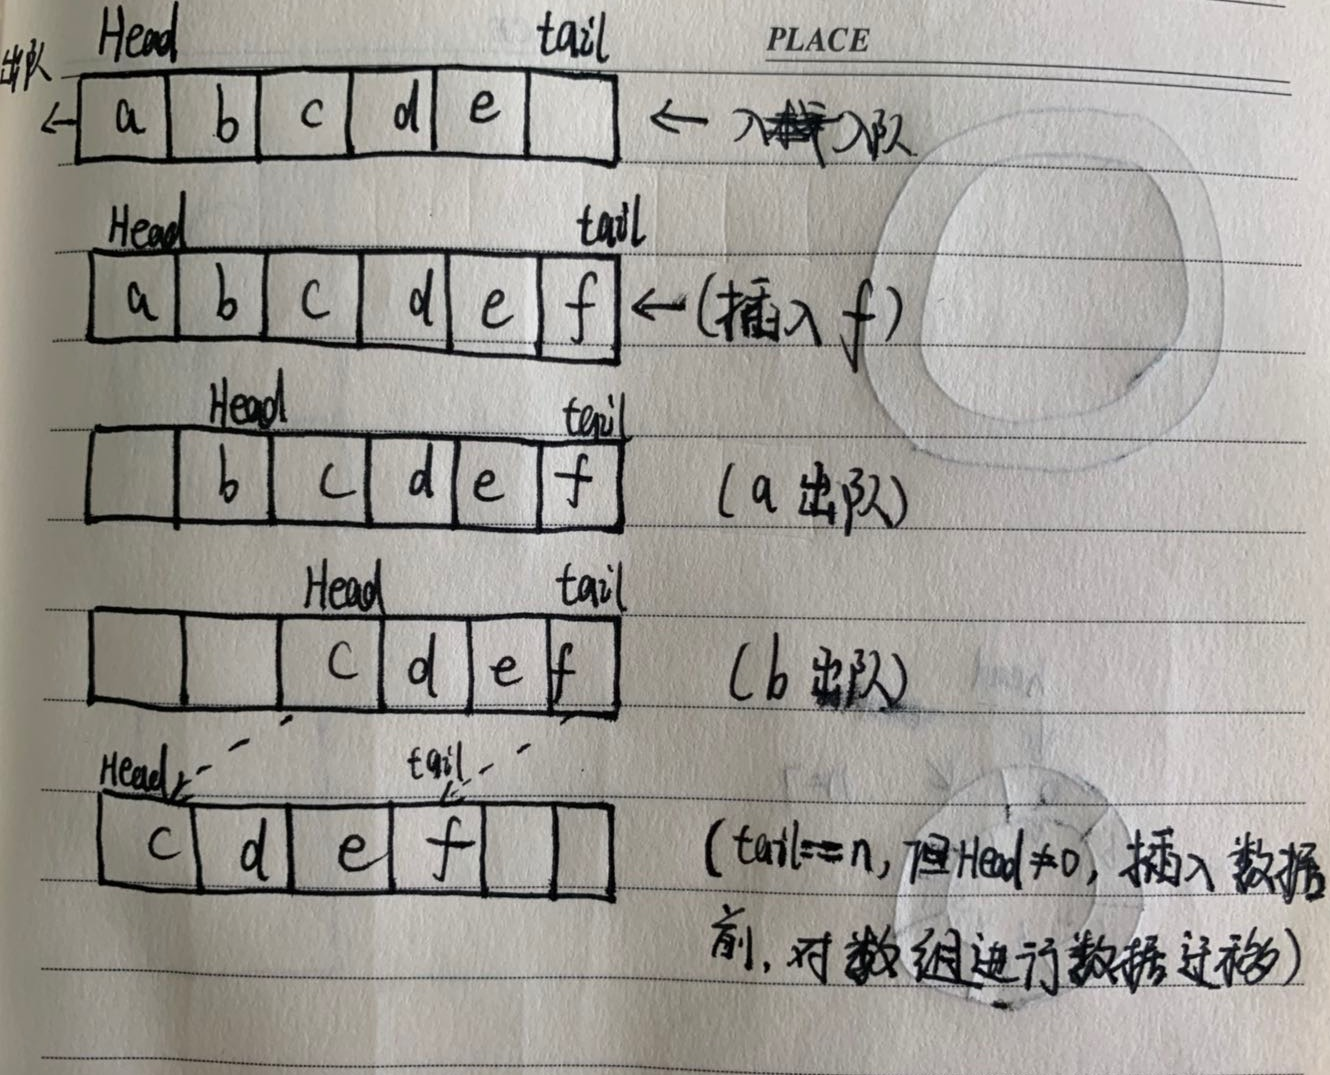 Head tail PLACE
出队
← a b c d e ← 入队
Head tail
a b c d e f ← (插入 f)
Head tail
b c d e f (a 出队)
Head tail
c d e f (b 出队)
Head tail
c d e f (tail==n, 但Head≠0, 插入数据
前, 对数组进行数据迁移)